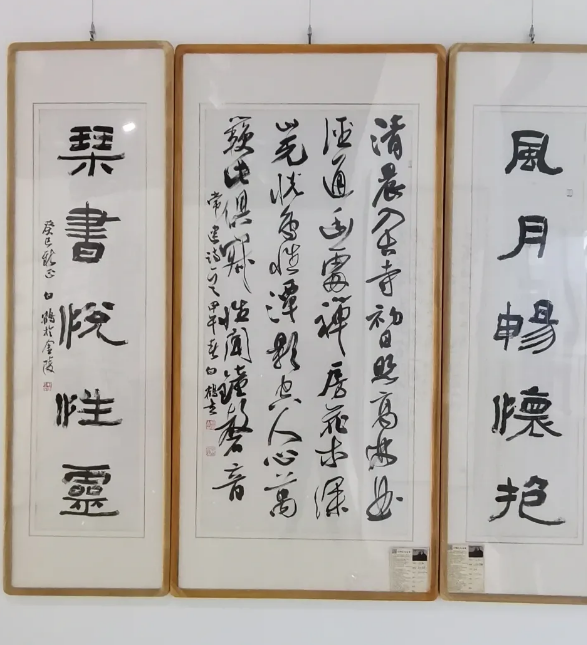 風月暢懷抱
清晨入古寺初日照高林曲
徑通幽處禪房花木深
山光悅鳥性潭影空人心萬
籟此俱寂惟聞鐘磬音
常建詩一首甲午春白鶴書
琹書悅性靈
癸巳龍正白鶴於金陵